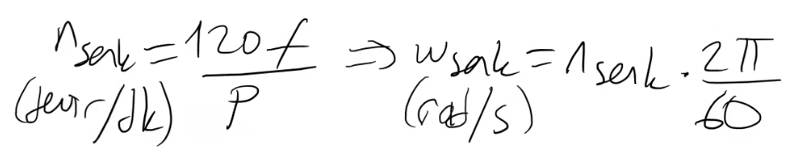 n_senk = 120f / P ⇒ w_senk = n_senk · 2π / 60
(devir/dk) (rad/s)